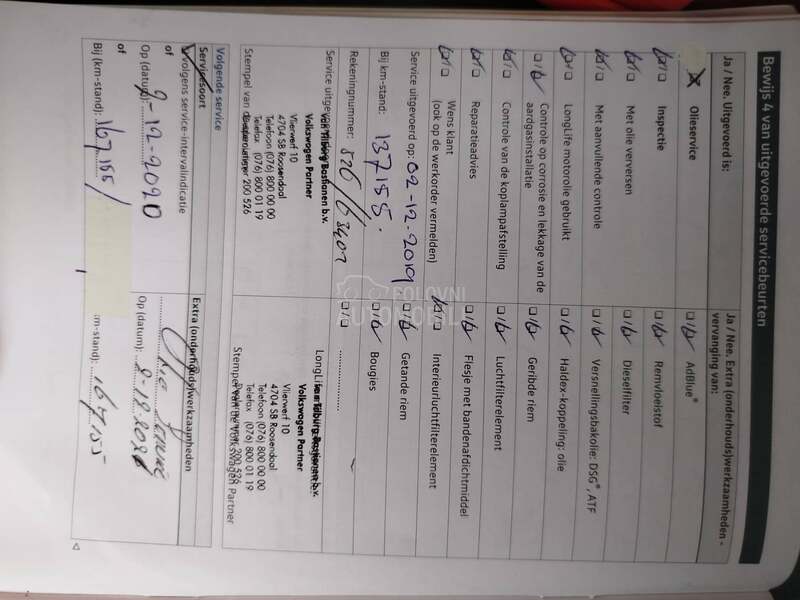 Bewijs 4 van uitgevoerde servicebeurten
Ja / Nee. Uitgevoerd is:
Olieservice
Inspectie
Met olie verversen
Met aanvullende controle
LongLife motorolie gebruikt
Controle op corrosie en lekkage van de
aardgasinstallatie
Controle van de koplampafstelling
Reparatieadvies
Wens klant
(ook op de werkorder vermelden)
Service uitgevoerd op: 02-12-2019
Bij km-stand: 137155.
Rekeningnummer:
Service uitgevoerd
van Tilburg Bastianen b.v.
Volkswagen Partner
Vlierwerf 10
4704 SB Roosendaal
Telefoon (076) 800 00 00
Telefax (076) 800 01 19
Dealernummer 200 526
Stempel van de
Ja / Nee. Extra (onderhouds)werkzaamheden -
vervanging van:
AdBlue®
Remvloeistof
Dieselfilter
Versnellingsbakolie: DSG®, ATF
Haldex-koppeling: olie
Geribde riem
Luchtfilterelement
Flesje met bandenafdichtmiddel
Interieurluchtfilterelement
Getande riem
Bougies
LongLife
van Tilburg Bastianen b.v.
Volkswagen Partner
Vlierwerf 10
4704 SB Roosendaal
Telefoon (076) 800 00 00
Telefax (076) 800 01 19
Dealernummer 200 526
Stempel van de Volkswagen Partner
Volgende service
Servicesoort
Volgens service-intervalindicatie
of
Op (datum): 2-12-2020
of
Bij (km-stand): 167155
Extra (onderhouds)werkzaamheden
Op (datum):
km-stand): 167155
POLOVNI
AUTOMOBILI